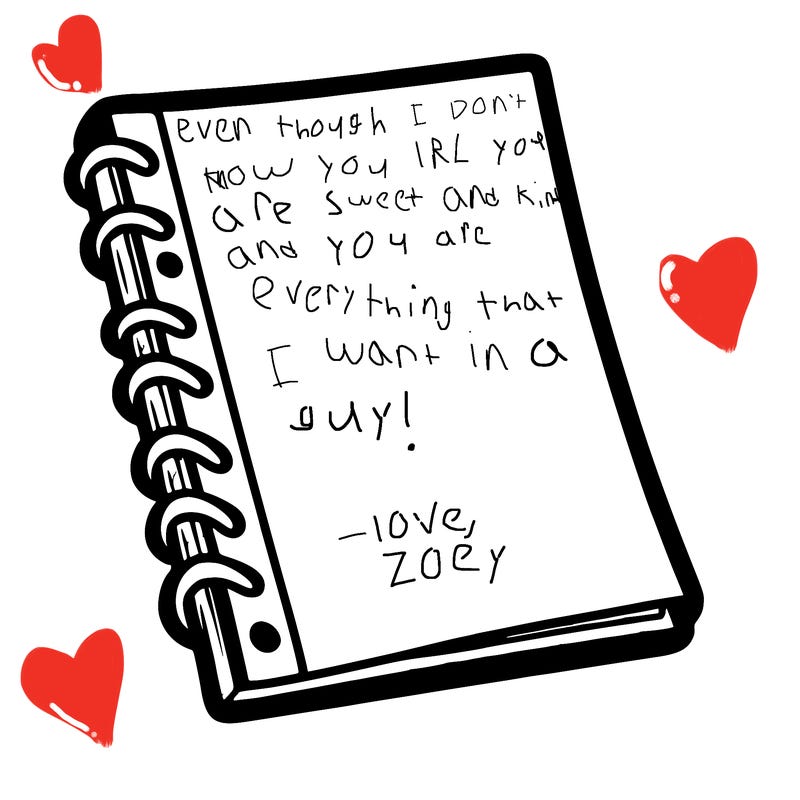 even though I DON't
know you IRL you
are sweet and kind
and you are
everything that
I want in a
guy!
-love,
zoey